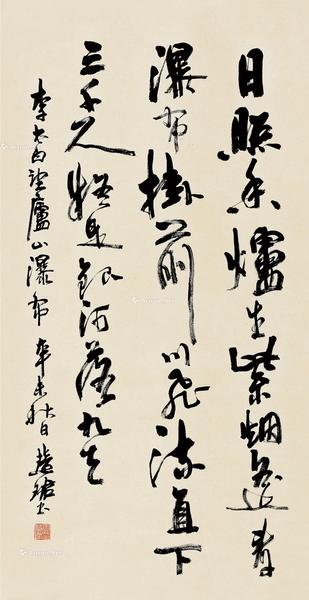 日照香爐生紫烟遥看
瀑布掛前川飛流直下
三千尺疑是銀河落九天
李太白望廬山瀑布 辛未秋日